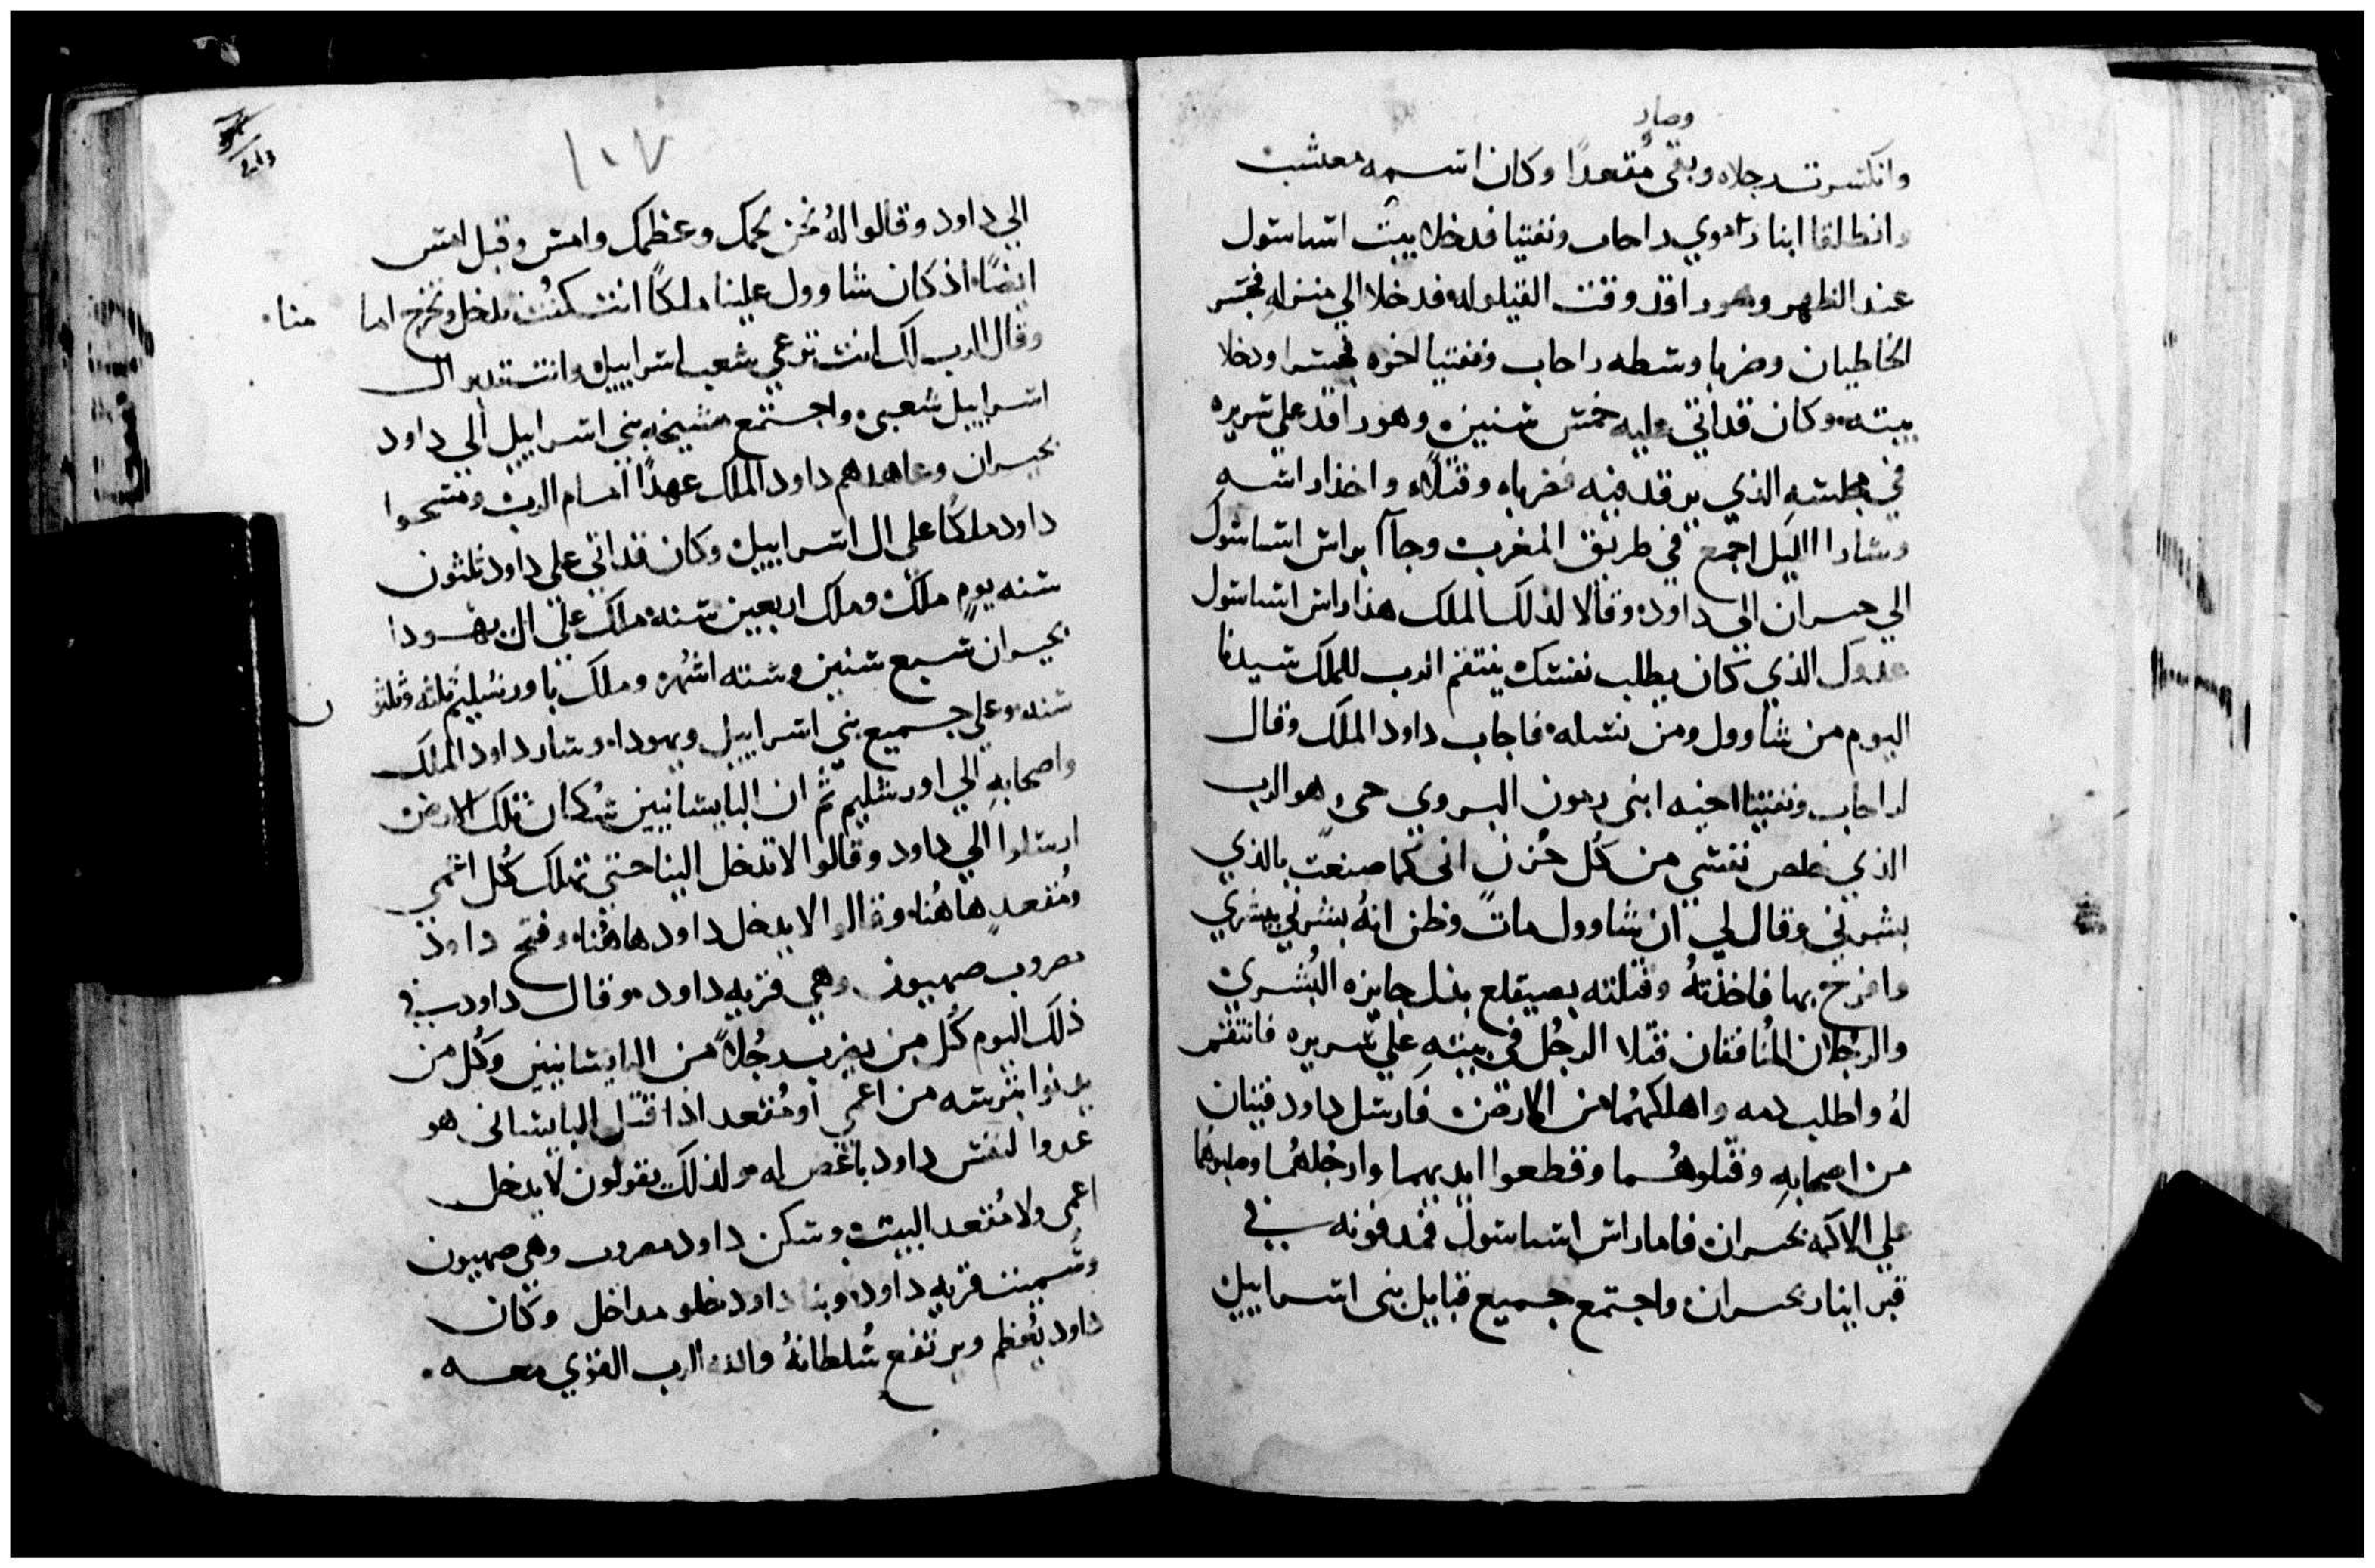 وصار
وانكسرت رجلاه وبقى مُقعدًا وكان اسمه معشب
وانطلقا ابنا راحاب ونفتيا فدخلا بيت اساسول
عند الظهر وهو راقد وقت القيلوله فدخلا الي منزله فجسر
الخاطيان وضربا وسطه راحاب ونفتيا اخوه فجسرا ودخلا
بيته وكان قد اتي عليه خمس سنين وهو راقد علي سريره
في مجلسه الذي يرقد فيه فضرباه وقتلاه واخذا راسه
وسارا الليل اجمع في طريق المغرب وجآا براس اساسول
الي حبران الي داود وقالا لذلك الملك هذا راس اساسول
عدوك الذي كان يطلب نفسك ينتقم الرب للملك سيدنا
اليوم من شاوول ومن نسله فاجاب داود الملك وقال
لراحاب ونفتيا اخيه ابنى رمون البيروي حى هو الرب
الذي خلص نفسي من كُل حُزن انى كما صنعت بالذي
بشرني وقال لي ان شاوول مات وظن انهُ بشرني ببشري
وافرح بها فاخذتهُ وقتلته بصيقلع بدل جايزه البُشري
والرجُلان المُنافقان قتلا الرجُل في بيتهِ علي سريره فانتقم
لهُ واطلب دمه واهلكهُما من الارض فارسل داود فتيان
من اصحابهِ وقتلوهُما وقطعوا ايديهما وارجُلهُما وصلبوهما
علي الاكمه بحبران فاما راس اساسول فدفنونه في
قبر ابنار بحبران واجتمع جميع قبايل بنى اسراييل
١٠٧
الي داود وقالوا لهُ نحن لحمك وعظمك وامس وقبل امس
ايضًا اذ كان شاوول علينا ملكًا انت كُنت تدخل وتخرج اما منا
وقال الرب لك انت ترعي شعب اسراييل وانت تدبر ال
اسراييل شعبى واجتمع مشيخه بني اسراييل الي داود
بحبران وعاهدهم داود الملك عهدًا امام الرب ومسحوا
داود ملكًا علي ال اسراييل وكان قد اتي علي داود ثلثون
سنه يوم ملك وملك اربعين سنه ملك علي ال يهودا
بحبران سبع سنين وسته اشهُر وملك باورشليم ثلثه وثلثون
سنه وعلي جميع بني اسراييل ويهودا وسار داود الملك
واصحابهِ الي اورشليم ثم ان اليابسانيين سُكان تلك الارض
ارسلوا الي داود وقالوا لا تدخل الينا حتي تهلك كُل اعمي
ومُقعد هاهُنا وقالوا لا يدخل داود هاهُنا وفتح داود
مصروب صهيون وهي قريه داود وقال داود في
ذلك اليوم كُل من يضرب رجُلاً من اليابسانيين وكُل من
يدنوا بترسه من اعمي او مُقعد اذا قتل اليابسانى هو
عدوا لنفس داود باغض له ولذلك يقولون لا يدخل
اعمى ولا مُقعد البيت وسكن داود مصروب وهي صهيون
وسُميت قريه داود وبنا داود مداخل وكان
داود يُعظم ويرتفع سُلطانهُ والله الرب القوي معه